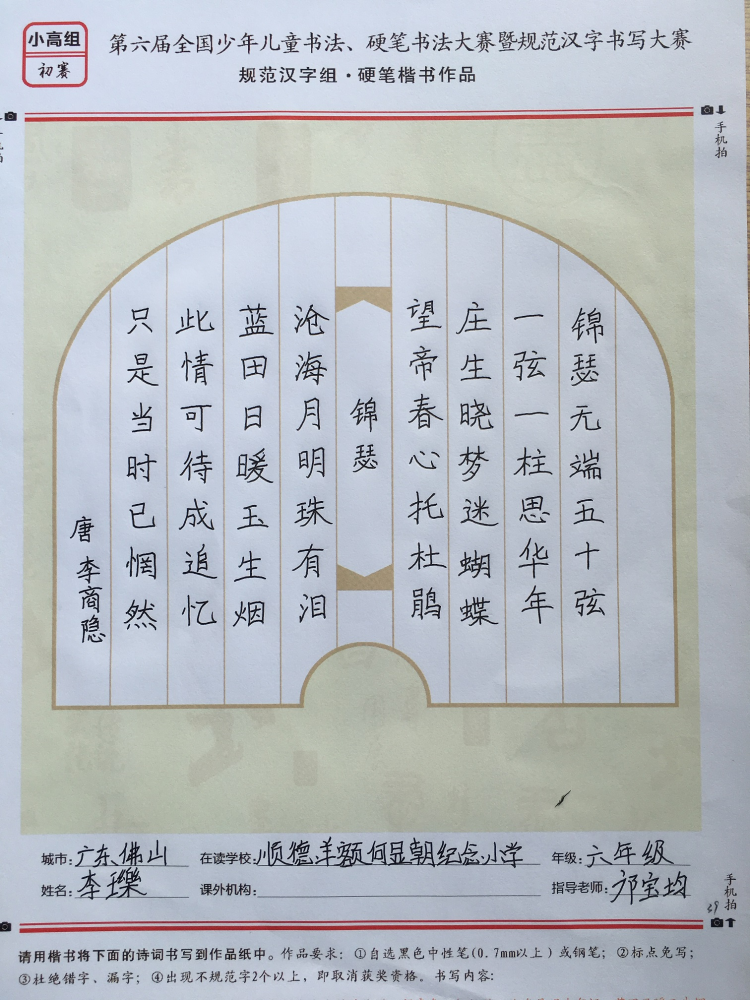 小高组
初赛
第六届全国少年儿童书法、硬笔书法大赛暨规范汉字书写大赛
规范汉字组·硬笔楷书作品
手机拍
锦瑟无端五十弦
一弦一柱思华年
庄生晓梦迷蝴蝶
望帝春心托杜鹃
锦瑟
沧海月明珠有泪
蓝田日暖玉生烟
此情可待成追忆
只是当时已惘然
唐 李商隐
城市：广东佛山 在读学校：顺德羊额何显朝纪念小学 年级：六年级
姓名：李瓅 课外机构： 指导老师：邝宝均
手机拍
39
请用楷书将下面的诗词书写到作品纸中。作品要求：①自选黑色中性笔(0.7mm以上)或钢笔；②标点免写；
③杜绝错字、漏字；④出现不规范字2个以上，即取消获奖资格。书写内容：